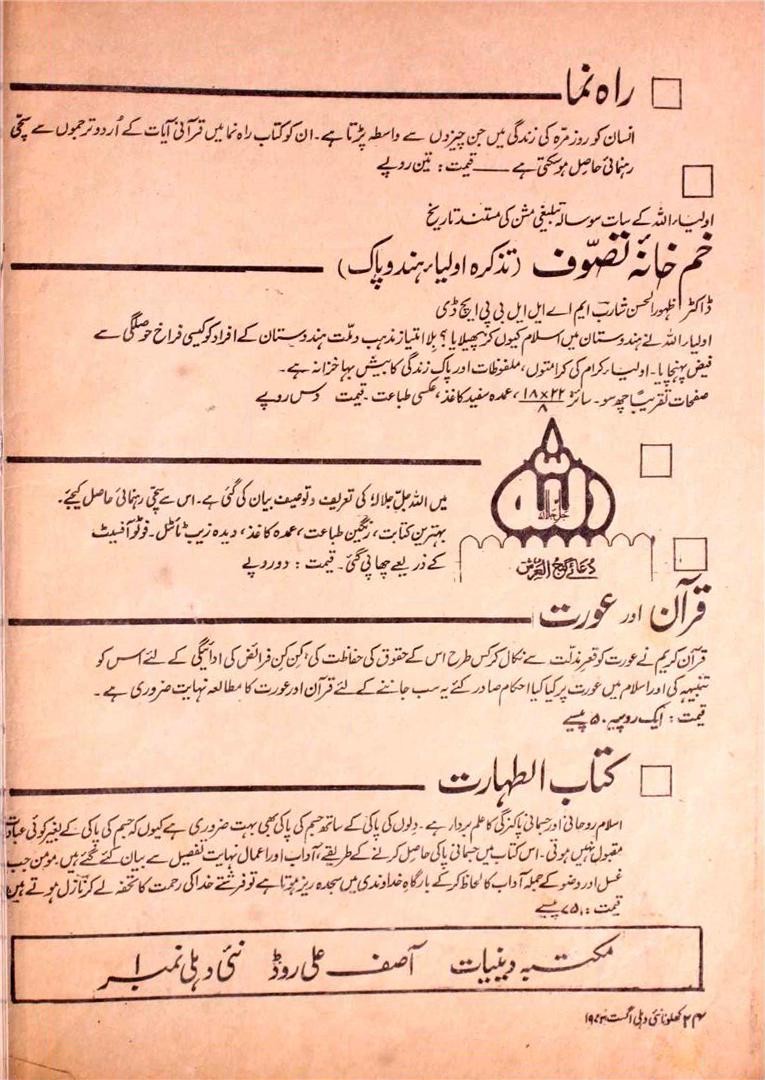 راہ نما
انسان کو روز مرہ کی زندگی میں جن چیزوں سے واسطہ پڑتا ہے۔ ان کو کتاب راہ نما میں قرآنی آیات کے اُردو ترجموں سے سچی
رہنمائی حاصل ہو سکتی ہے —— قیمت: تین روپے
اولیاء اللہ کے سات سو سالہ تبلیغی مشن کی مستند تاریخ
خم خانۂ تصوّف (تذکرہ اولیاء ہند و پاک)
ڈاکٹر ظہور الحسن شارب ایم اے ایل ایل بی پی ایچ ڈی
اولیاء اللہ نے ہندوستان میں اسلام کیوں کر پھیلایا؟ بلا امتیاز مذہب و ملّت ہندوستان کے افراد کو کیسی فراخ حوصلگی سے
فیض پہنچایا۔ اولیاء کرام کی کرامتوں، ملفوظات اور پاک زندگی کا بیش بہا خزانہ ہے۔
صفحات تقریباً چھ سو۔ سائز ۱۸×۲۲/۸، عمدہ سفید کاغذ، عکسی طباعت۔ قیمت دس روپے
اللہ
جل جلالہ
دُعائے گنج العرش
میں اللہ جلّ جلالہٗ کی تعریف و توصیف بیان کی گئی ہے۔ اس سے سچی رہنمائی حاصل کیجئے۔
بہترین کتابت، رنگین طباعت، عمدہ کاغذ، دیدہ زیب ٹائٹل۔ فوٹو آفسیٹ
کے ذریعے چھاپی گئی۔ قیمت: دو روپے
قرآن اور عورت
قرآن کریم نے عورت کو قعرِ مذلّت سے نکال کر کس طرح اس کے حقوق کی حفاظت کی، کن کن فرائض کی ادائیگی کے لئے اس کو
تنبیہہ کی اور اسلام میں عورت پر کیا کیا احکام صادر کئے یہ سب جاننے کے لئے قرآن اور عورت کا مطالعہ نہایت ضروری ہے۔
قیمت: ایک روپیہ ۵۰ پیسے
کتاب الطہارت
اسلام روحانی اور جسمانی پاکیزگی کا علم بردار ہے۔ دلوں کی پاکی کے ساتھ جسم کی پاکی بھی بہت ضروری ہے کیوں کہ جسم کی پاکی کے بغیر کوئی عبادت
مقبول نہیں ہوتی۔ اس کتاب میں جسمانی پاکی حاصل کرنے کے طریقے، آداب اور اعمال نہایت تفصیل سے بیان کئے گئے ہیں۔ مومن جب
غسل اور وضو کے جملہ آداب کا لحاظ کر کے بارگاہِ خداوندی میں سجدہ ریز ہوتا ہے تو فرشتے خدا کی رحمت کا تحفہ لے کر نازل ہوتے ہیں
قیمت: ۷۵ پیسے
مکتبہ دینیات آصف علی روڈ نئی دہلی نمبر ۱
۲۴ کھلونا نئی دہلی اگست